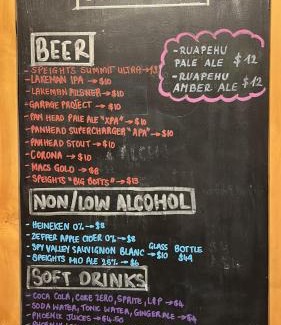 BEER
- SPEIGHTS SUMMIT ULTRA →
- LAKEMAN IPA → $10
- LAKEMAN PILSNER → $10
- GARAGE PROJECT → $10
- PAN HEAD PALE ALE "XPA" → $10
- PANHEAD SUPERCHARGER "APA" → $10
- PANHEAD STOUT → $10
- CORONA → $10
- MACS GOLD → $8
- SPEIGHTS "BIG BOTTS" → $13
- RUAPEHU PALE ALE $12
- RUAPEHU AMBER ALE $12
NON/LOW ALCOHOL
- HEINEKEN 0% → $8
- ZEFFER APPLE CIDER 0% → $8
GLASS BOTTLE
- SPY VALLEY SAUVIGNON BLANC → $10 $44
- SPEIGHTS MID ALE 2.5% → $6
SOFT DRINKS
- COCA COLA, COKE ZERO, SPRITE, L&P → $4
- SODA WATER, TONIC WATER, GINGER ALE → $4
- PHOENIX JUICES → $4.50